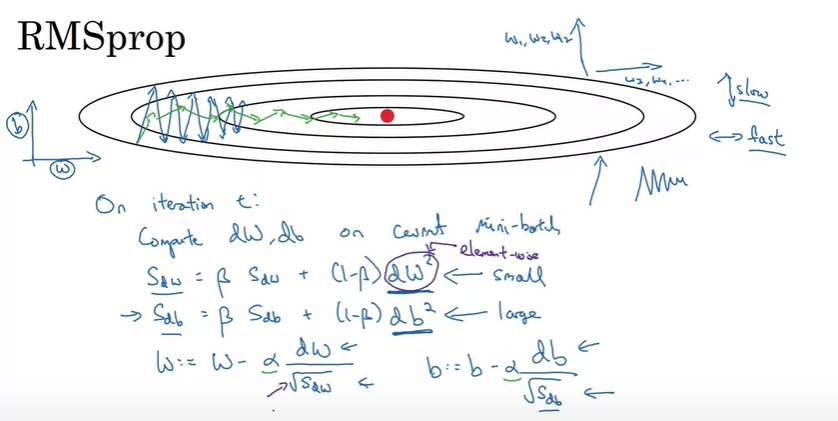 RMSprop
w₁, w₂, w₂
w₃, w₄, ...
↕ slow
↔ fast
b
w
On iteration t:
Compute dW, db on current mini-batch
element-wise
S_dw = β S_dw + (1-β) dW² ← small
→ S_db = β S_db + (1-β) db² ← large
W := W - α dW/√S_dw ← b := b - α db/√S_db ←